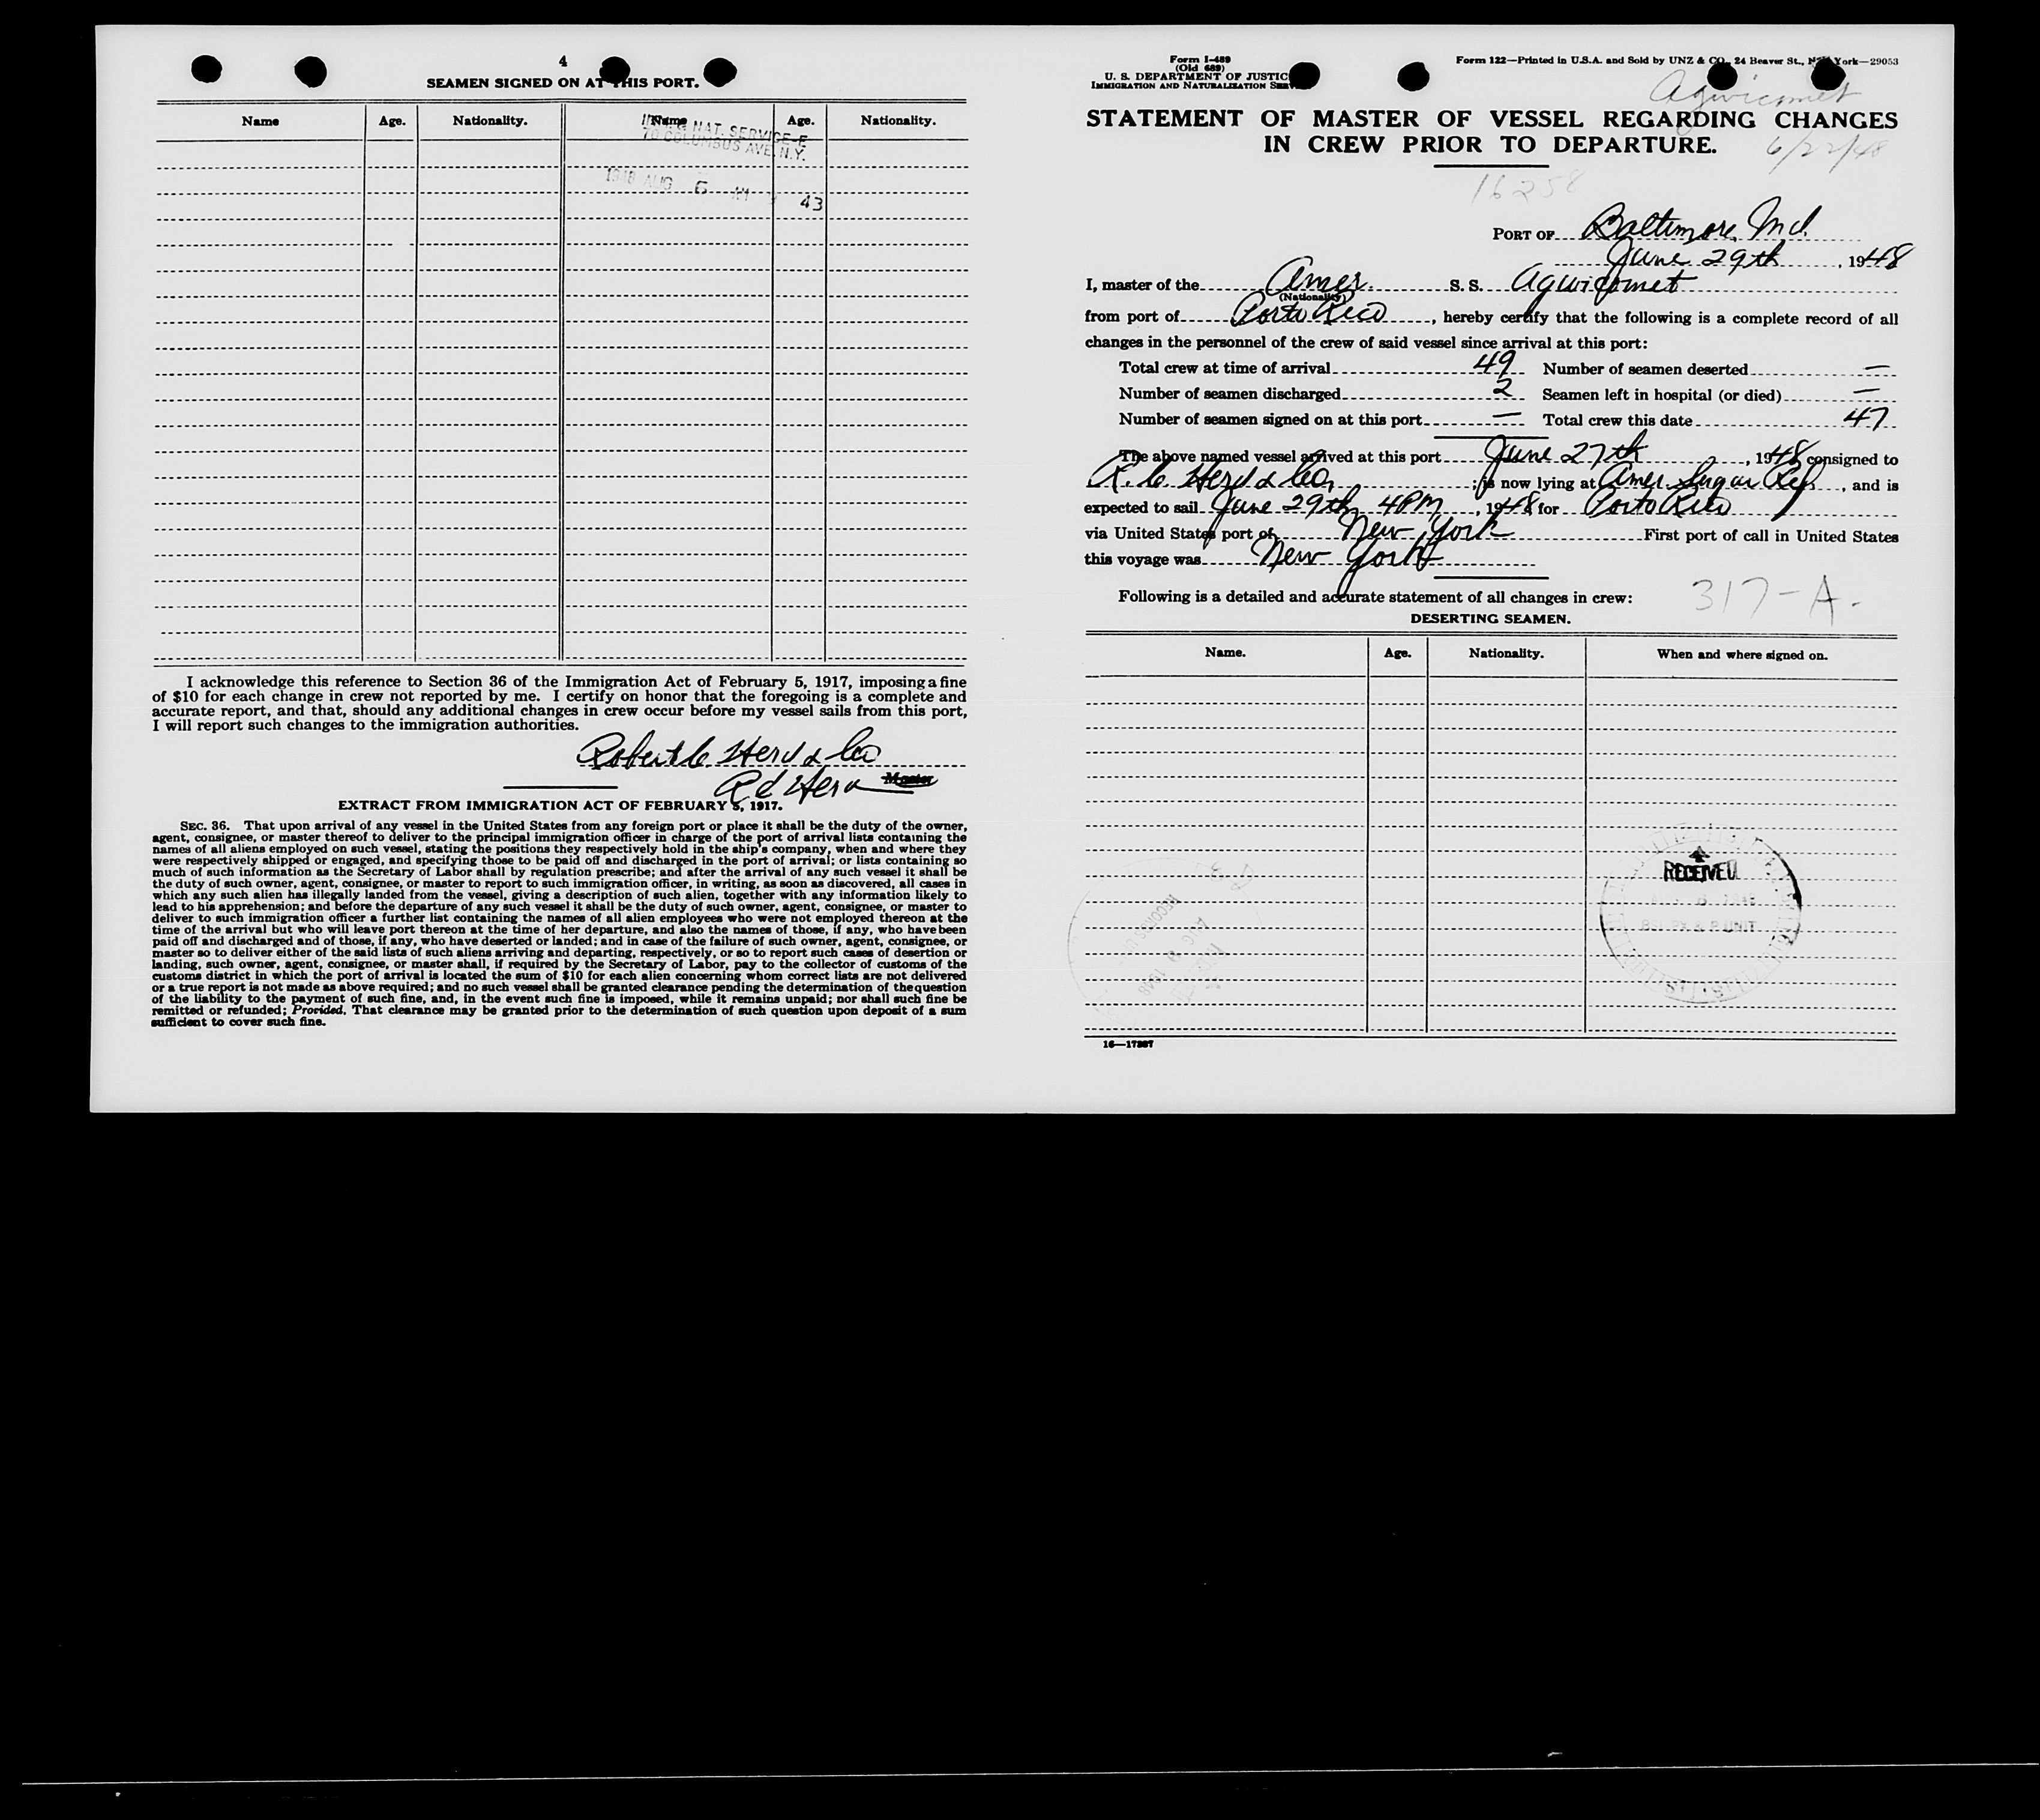 4
SEAMEN SIGNED ON AT THIS PORT.
Name Age. Nationality. Name Age. Nationality.
NAT. SERVICE
70 COLUMBUS AVE. N.Y.
1948 AUG 6 AM 43
I acknowledge this reference to Section 36 of the Immigration Act of February 5, 1917, imposing a fine
of $10 for each change in crew not reported by me. I certify on honor that the foregoing is a complete and
accurate report, and that, should any additional changes in crew occur before my vessel sails from this port,
I will report such changes to the immigration authorities.
Robert C Herd & Co
R C Herd Master
EXTRACT FROM IMMIGRATION ACT OF FEBRUARY 5, 1917.
SEC. 36. That upon arrival of any vessel in the United States from any foreign port or place it shall be the duty of the owner,
agent, consignee, or master thereof to deliver to the principal immigration officer in charge of the port of arrival lists containing the
names of all aliens employed on such vessel, stating the positions they respectively hold in the ship's company, when and where they
were respectively shipped or engaged, and specifying those to be paid off and discharged in the port of arrival; or lists containing so
much of such information as the Secretary of Labor shall by regulation prescribe; and after the arrival of any such vessel it shall be
the duty of such owner, agent, consignee, or master to report to such immigration officer, in writing, as soon as discovered, all cases in
which any such alien has illegally landed from the vessel, giving a description of such alien, together with any information likely to
lead to his apprehension; and before the departure of any such vessel it shall be the duty of such owner, agent, consignee, or master to
deliver to such immigration officer a further list containing the names of all alien employees who were not employed thereon at the
time of the arrival but who will leave port thereon at the time of her departure, and also the names of those, if any, who have been
paid off and discharged and of those, if any, who have deserted or landed; and in case of the failure of such owner, agent, consignee, or
master so to deliver either of the said lists of such aliens arriving and departing, respectively, or so to report such cases of desertion or
landing, such owner, agent, consignee, or master shall, if required by the Secretary of Labor, pay to the collector of customs of the
customs district in which the port of arrival is located the sum of $10 for each alien concerning whom correct lists are not delivered
or a true report is not made as above required; and no such vessel shall be granted clearance pending the determination of the question
of the liability to the payment of such fine, and, in the event such fine is imposed, while it remains unpaid; nor shall such fine be
remitted or refunded; Provided, That clearance may be granted prior to the determination of such question upon deposit of a sum
sufficient to cover such fine.
Form I-489
(Old 689)
U. S. DEPARTMENT OF JUSTICE
IMMIGRATION AND NATURALIZATION SERVICE
Form 122—Printed in U.S.A. and Sold by UNZ & CO., 24 Beaver St., New York—29053
Agwicomet
STATEMENT OF MASTER OF VESSEL REGARDING CHANGES
IN CREW PRIOR TO DEPARTURE.
6/22/48
16258
PORT OF Baltimore, Md.
June 29th, 1948
I, master of the Amer. S. S. Agwicomet
(Nationality)
from port of Porto Rico, hereby certify that the following is a complete record of all
changes in the personnel of the crew of said vessel since arrival at this port:
Total crew at time of arrival 49 Number of seamen deserted —
Number of seamen discharged 2 Seamen left in hospital (or died) —
Number of seamen signed on at this port — Total crew this date 47
The above named vessel arrived at this port June 27th, 1948 consigned to
R. C. Herd & Co.; is now lying at Amer. Sugar Ref., and is
expected to sail June 29th 4PM, 1948, for Porto Rico
via United States port of New York First port of call in United States
this voyage was New York
Following is a detailed and accurate statement of all changes in crew:
317-A.
DESERTING SEAMEN.
Name. Age. Nationality. When and where signed on.
RECEIVED
16—17267